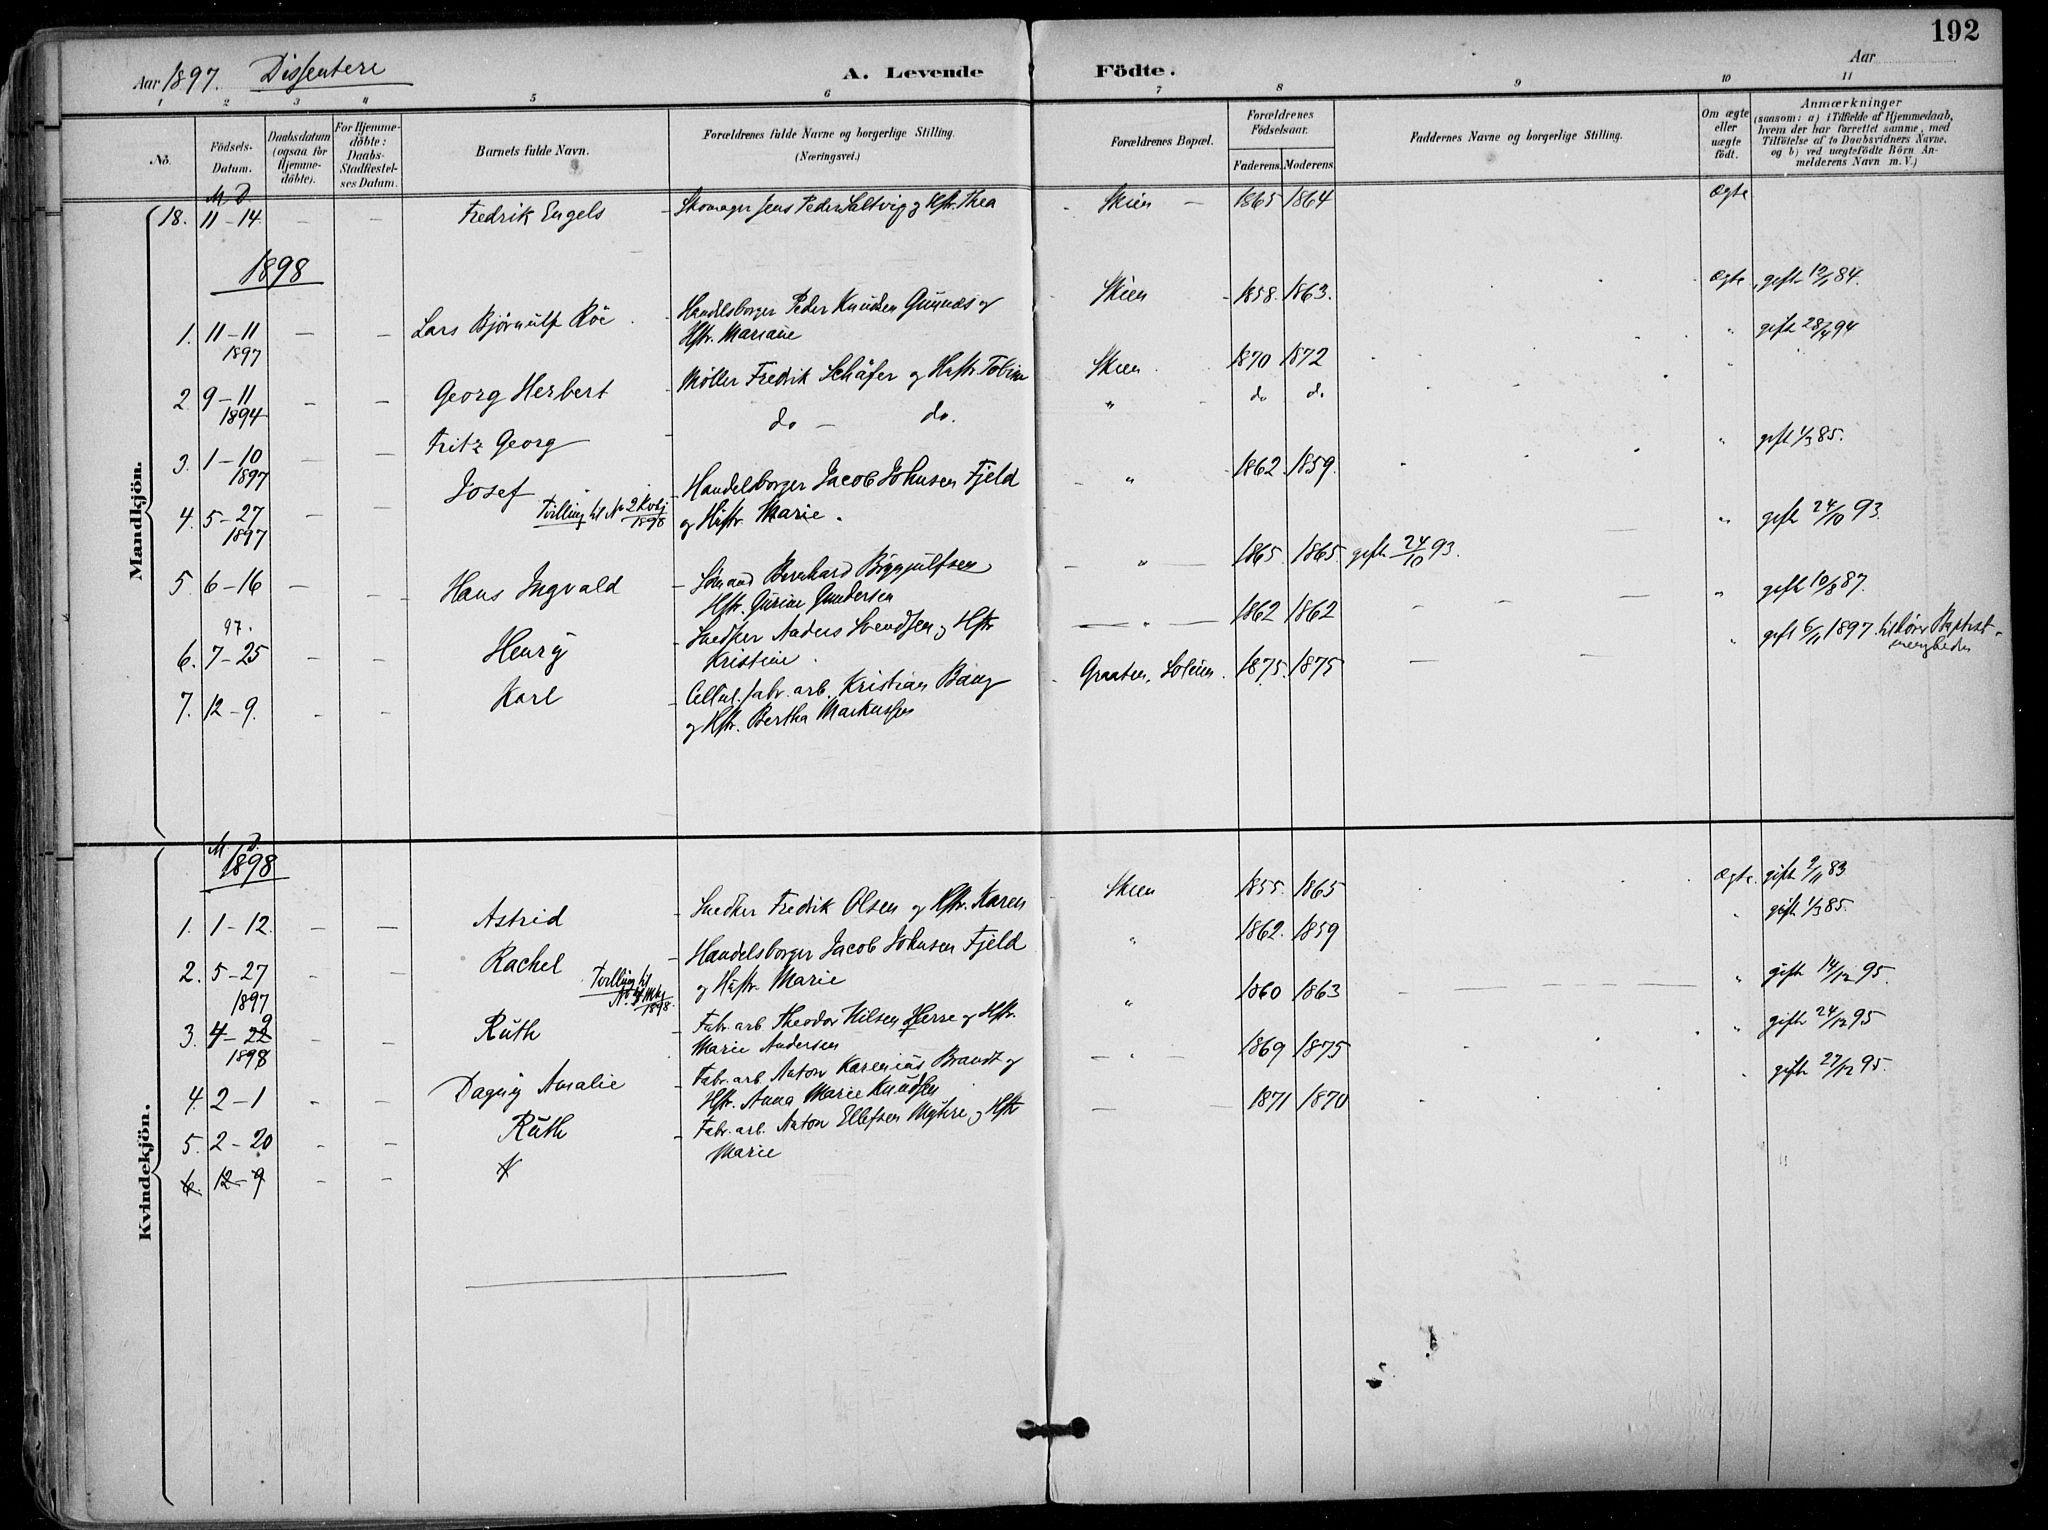 192
Aar 1897. Dissentere
A. Levende Födte.
Aar
1 2 3 4 5 6 7 8 9 10 11
No.
Födsels-Datum.
Daabsdatum (ogsaa for Hjemme-döbte).
For Hjemme-döbte: Daabs-Stadfæstel-ses Datum.
Barnets fulde Navn.
Forældrenes fulde Navne og borgerlige Stilling.
(Næringsvei.)
Forældrenes Bopæl.
Forældrenes Födselsaar.
Faderens. Moderens.
Faddernes Navne og borgerlige Stilling.
Om ægte eller uægte födt.
Anmærkninger
(saasom: a) i Tilfælde af Hjemmedaab, hvem der har forrettet samme, med Tilföielse af to Daabsvidners Navne, og b) ved uægtefödte Börn An-melderens Navn m. V.)
Mandkjön.
M D
18. 11-14. – – Fredrik Engels – Skomager Jens Peder Saltvig og Hstr. Thea Skien – 1865 1864 Ægte
1898
1. 11-11 1897 – – Lars Bjørnulf Roe Handelsborger Peder Knudsen Gunnes og
Hstr. Mariane Skien 1858. 1863. Ægte gift 12/1 84.
2. 9-11 1894 – – Georg Herbert Møller Fredrik Schäfer og Hustr. Tobine Skien 1870 1872 " gift 28/4 94
3. 1-10 1897 – – Fritz Georg – do – do. " do do
4. 5-27 1897 – – Josef Tvilling til No 2 Kvkj 1898 Handelsborger Jacob Johnsen Fjeld
og Hustr. Marie. " 1862 1859. " gift 1/3 85.
5. 6-16 – – Hans Ingvald – Sömand Bernhard Bryjnulfsen
Hstr. Gurine Gundersen " 1865 1865 gift 24/10 93. " gift 24/10 93.
97.
6. 7-25 – – Henry – Snedker Anders Svendsen og Hstr
Kristine. " 1862 1862 " gift 10/8 87.
7. 12-9. – – Karl – Cellul. fabr. arb. Kristian Bang
og Hstr. Bertha Markussen Graaten, Solum. 1875. 1875 " gift 6/11 1897. tilhører Baptist-
menigheden
Kvindekjön.
M. D.
1898
1. 1-12. – – Astrid – Snedker Fredrik Olsen og Hstr. Karen Skien 1855. 1865 Ægte. gift 9/11 83
2. 5-27 1897 – – Rachel Tvilling til No 4 Mkj 1898. – Handelsborger Jacob Johnsen Fjeld
og Hustr. Marie " 1862. 1859 " gift 1/3 85.
3. 4-22 9 1898 – – Ruth – Fabr. arb. Theodor Nilsen Herre og Hstr.
Marie Andersen " 1860 1863 " gift 14/12 95.
4. 2-1 – – Dagny Amalie – Fabr. arb. Anton Karenius Brandt og
Hstr. Anna Marie Knudsen " 1869 1875 " gift 24/12 95
5. 2-20 – – Ruth – Fabr. arb. Anton Ellefsen Myhre og Hstr
Marie 1871 1870 " gift 27/12 95.
6. 12-9 – –